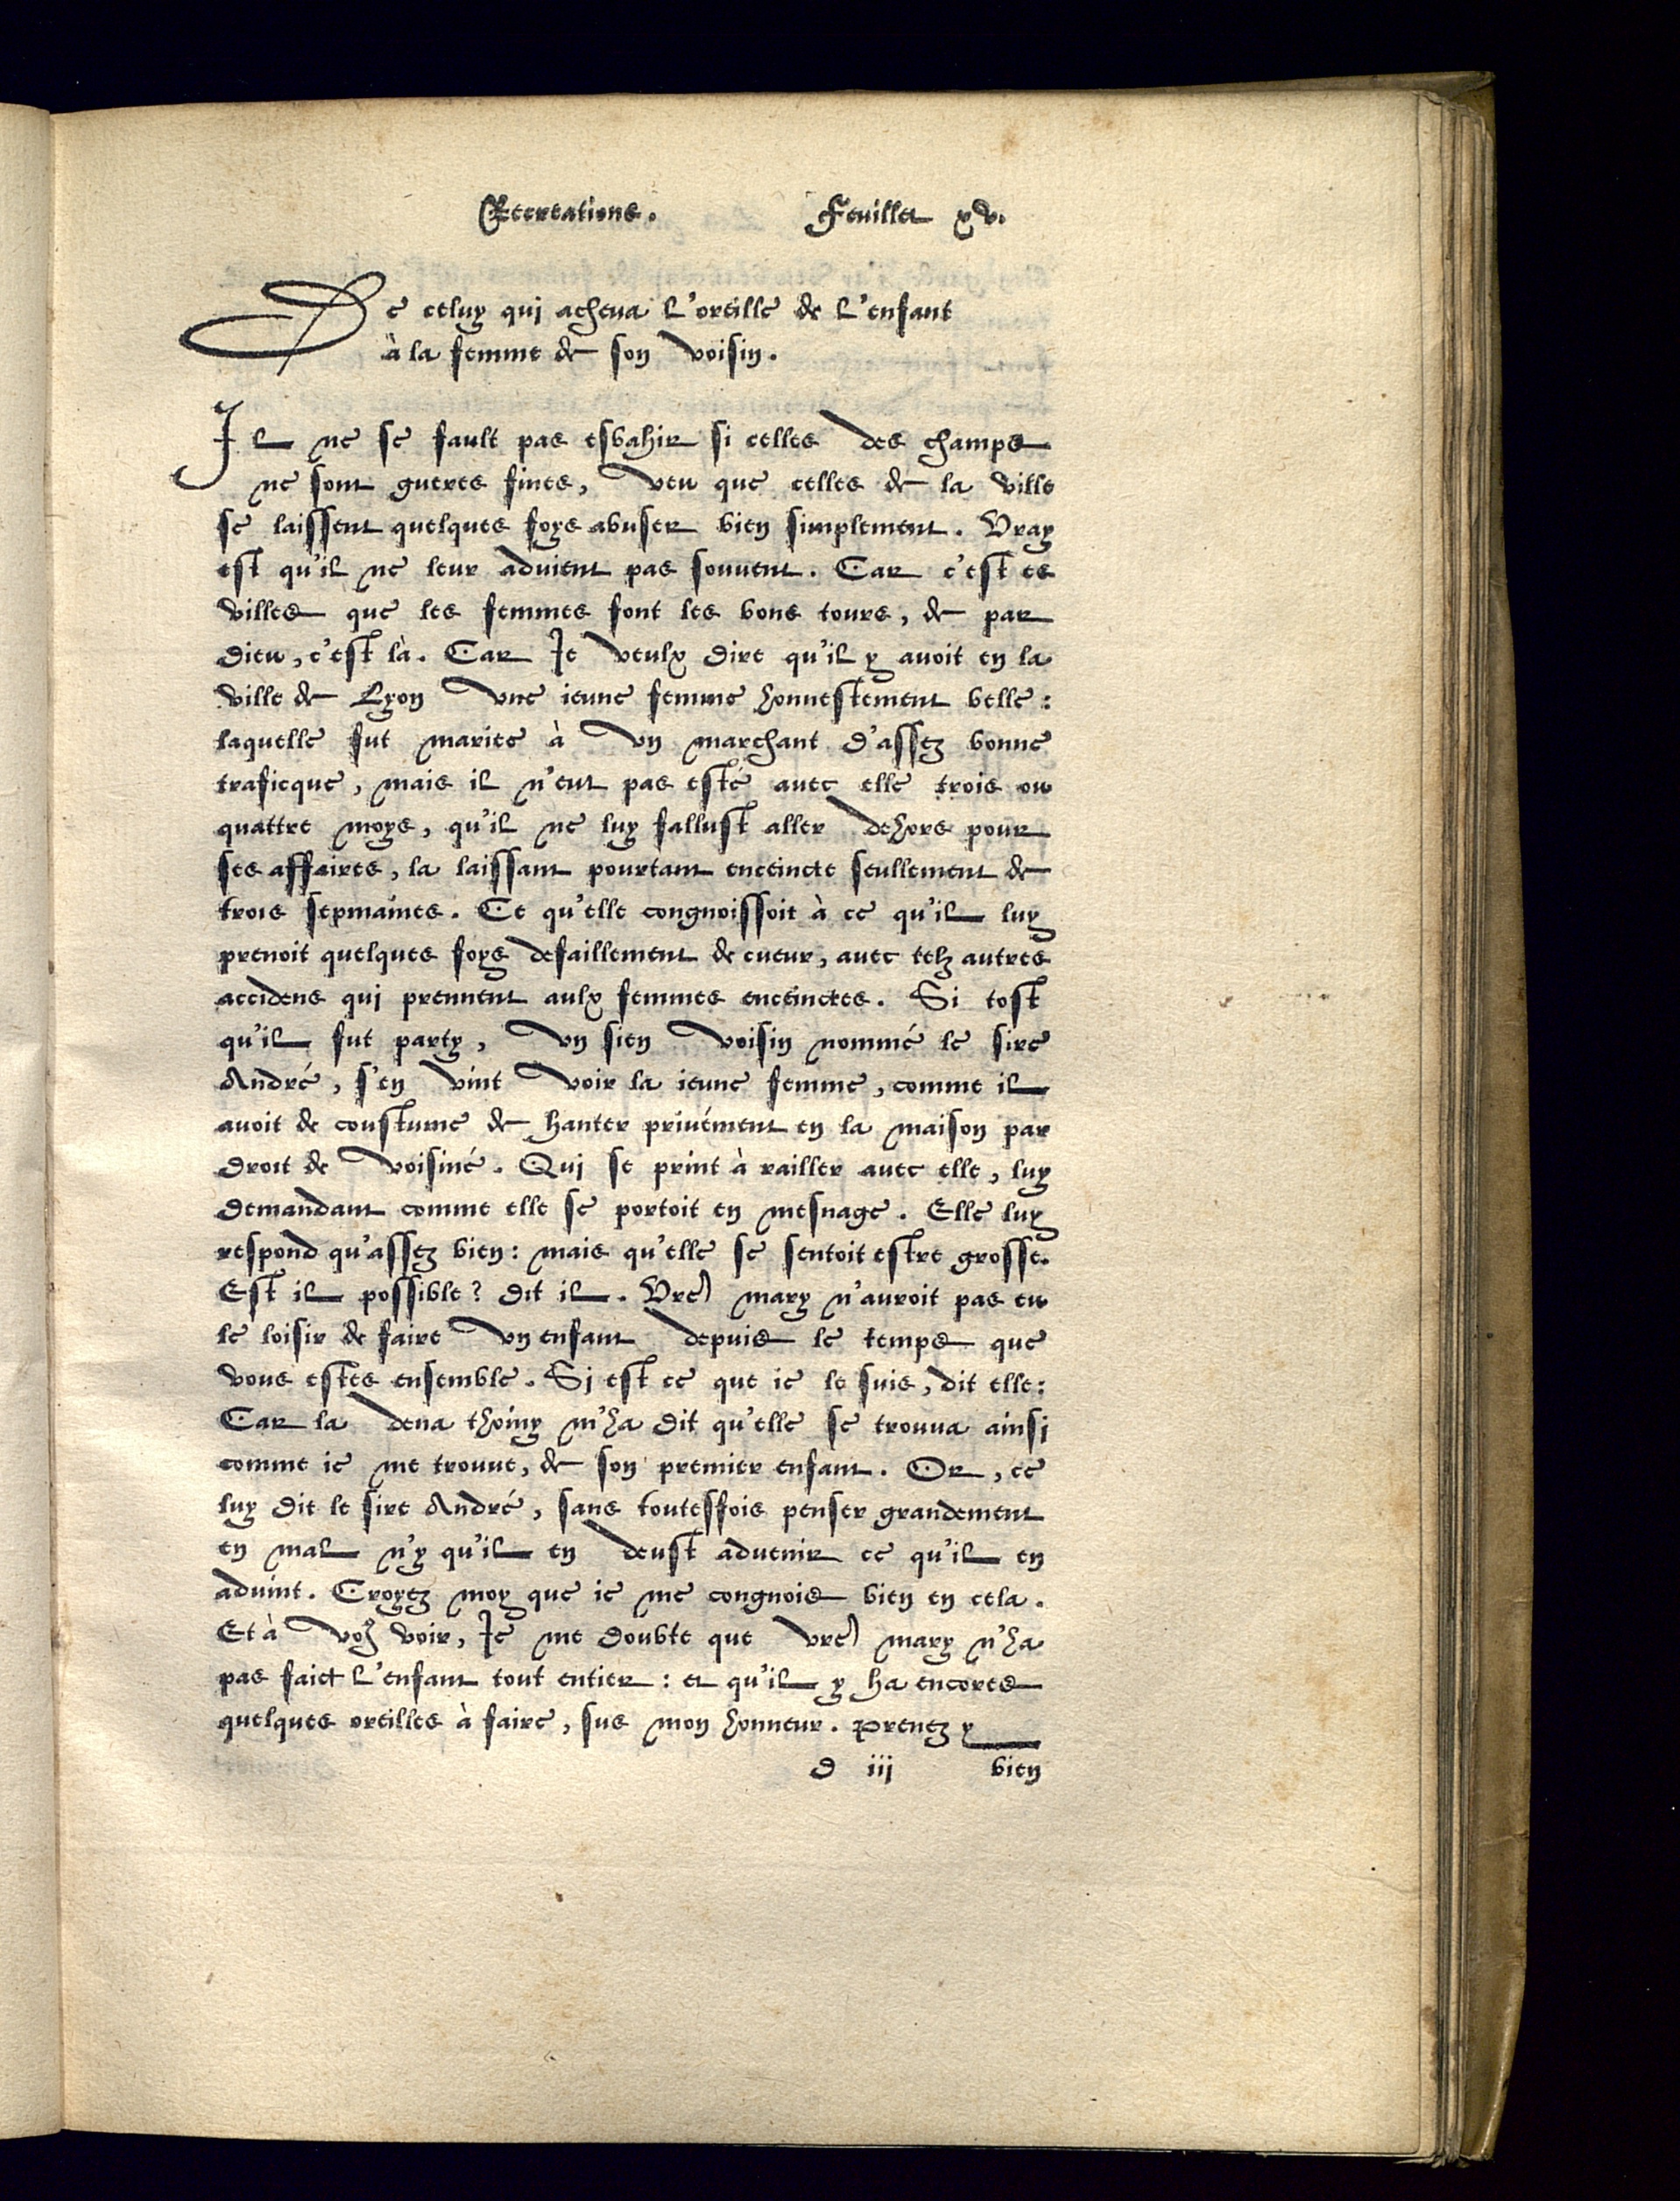 Recreations. Feuillet xv.
De celuy qui acheva l'oreille de l'enfant
à la femme de son voisin.
Il ne se fault pas esbahir si celles des champs
ne sont gueres fines, veu que celles de la ville
se laissent quelques foys abuser bien simplement. Vray
est qu'il ne leur advient pas souvent. Car c'est es
villes que les femmes font les bons tours, de par
dieu, c'est là. Car Ie veulx dire qu'il y avoit en la
ville de Lyon une ieune femme honnestement belle:
laquelle fut mariee à un marchant d'assez bonne
traficque, mais il n'eut pas esté avec elle trois ou
quattre moys, qu'il ne luy fallust aller dehors pour
ses affaires, la laissant pourtant enceincte seullement de
trois sepmaines. Ce qu'elle congnoissoit à ce qu'il luy
prenoit quelques foys defaillement de cueur, avec telz autres
accidens qui prennent aulx femmes enceinctes. Si tost
qu'il fut party, un sien voisin nommé le sire
André, s'en vint voir la ieune femme, comme il
avoit de coustume de hanter privément en la maison par
droit de voisiné. Qui se print à railler avec elle, luy
demandant comme elle se portoit en mesnage. Elle luy
respond qu'assez bien: mais qu'elle se sentoit estre grosse.
Est il possible? dit il. Vre mary n'auroit pas eu
le loisir de faire un enfant depuis le temps que
vous estes ensemble. Si est ce que ie le suis, dit elle:
Car la dena thoiny m'ha dit qu'elle se trouva ainsi
comme ie me trouve, de son premier enfant. Or, ce
luy dit le sire André, sans toutesfois penser grandement
en mal n'y qu'il en deust advenir ce qu'il en
advint. Croyez moy que ie me congnois bien en cela.
Et à vos voir, Ie me doubte que vre mary n'ha
pas faict l'enfant tout entier: et qu'il y ha encores
quelques oreilles à faire, sus mon honneur. Prenez y
d iij bien